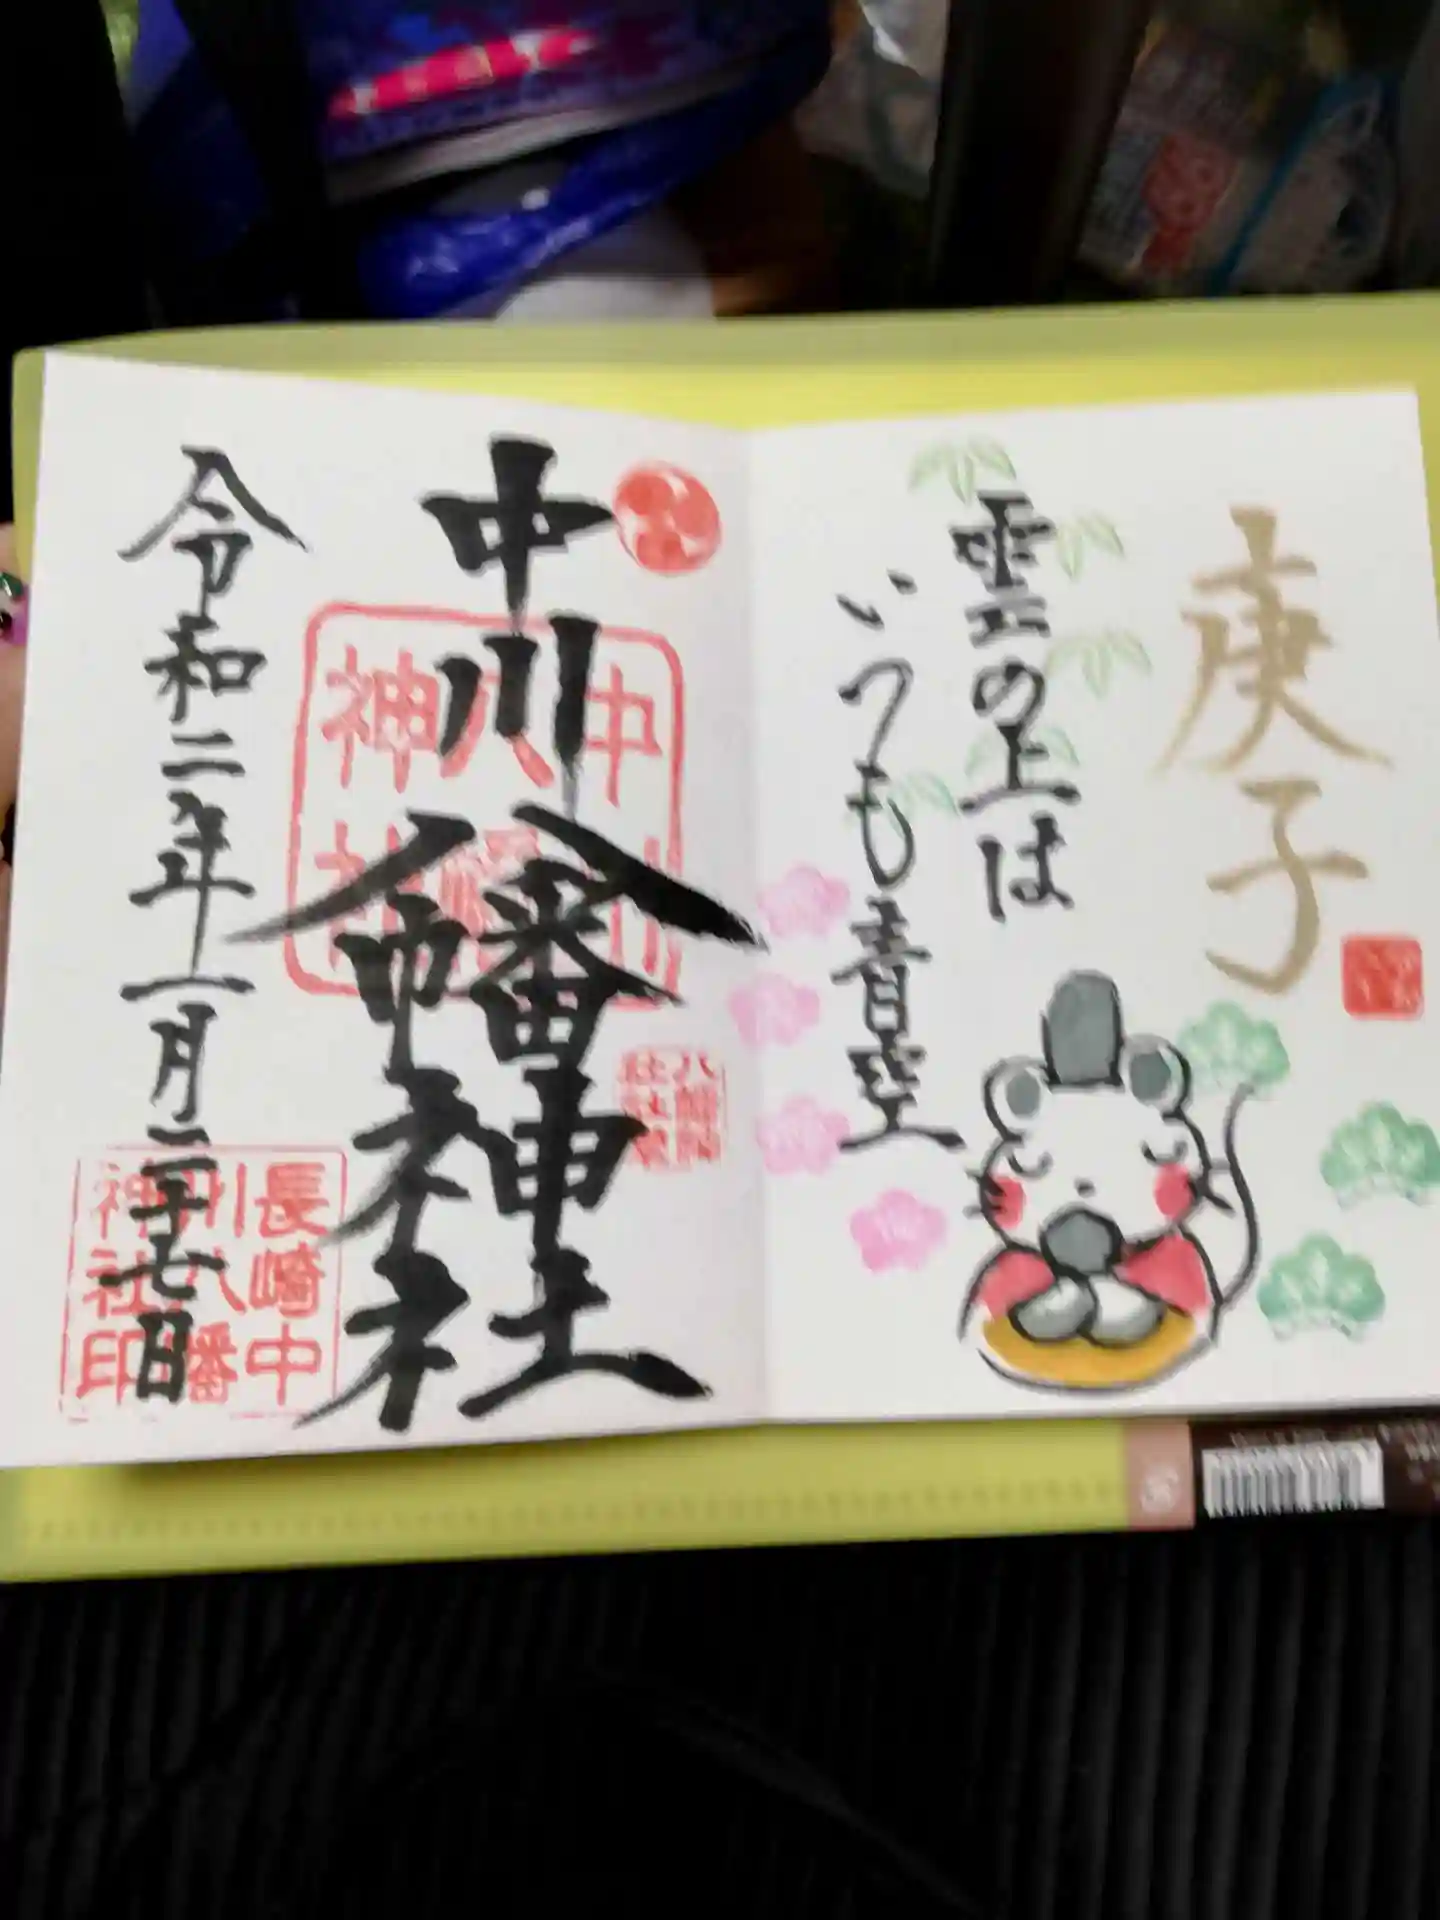 庚子
雲の上は
いつも青空
中川八幡神社
中川八幡神社
八幡神社
令和二年一月二十七日
長崎中川八幡神社印